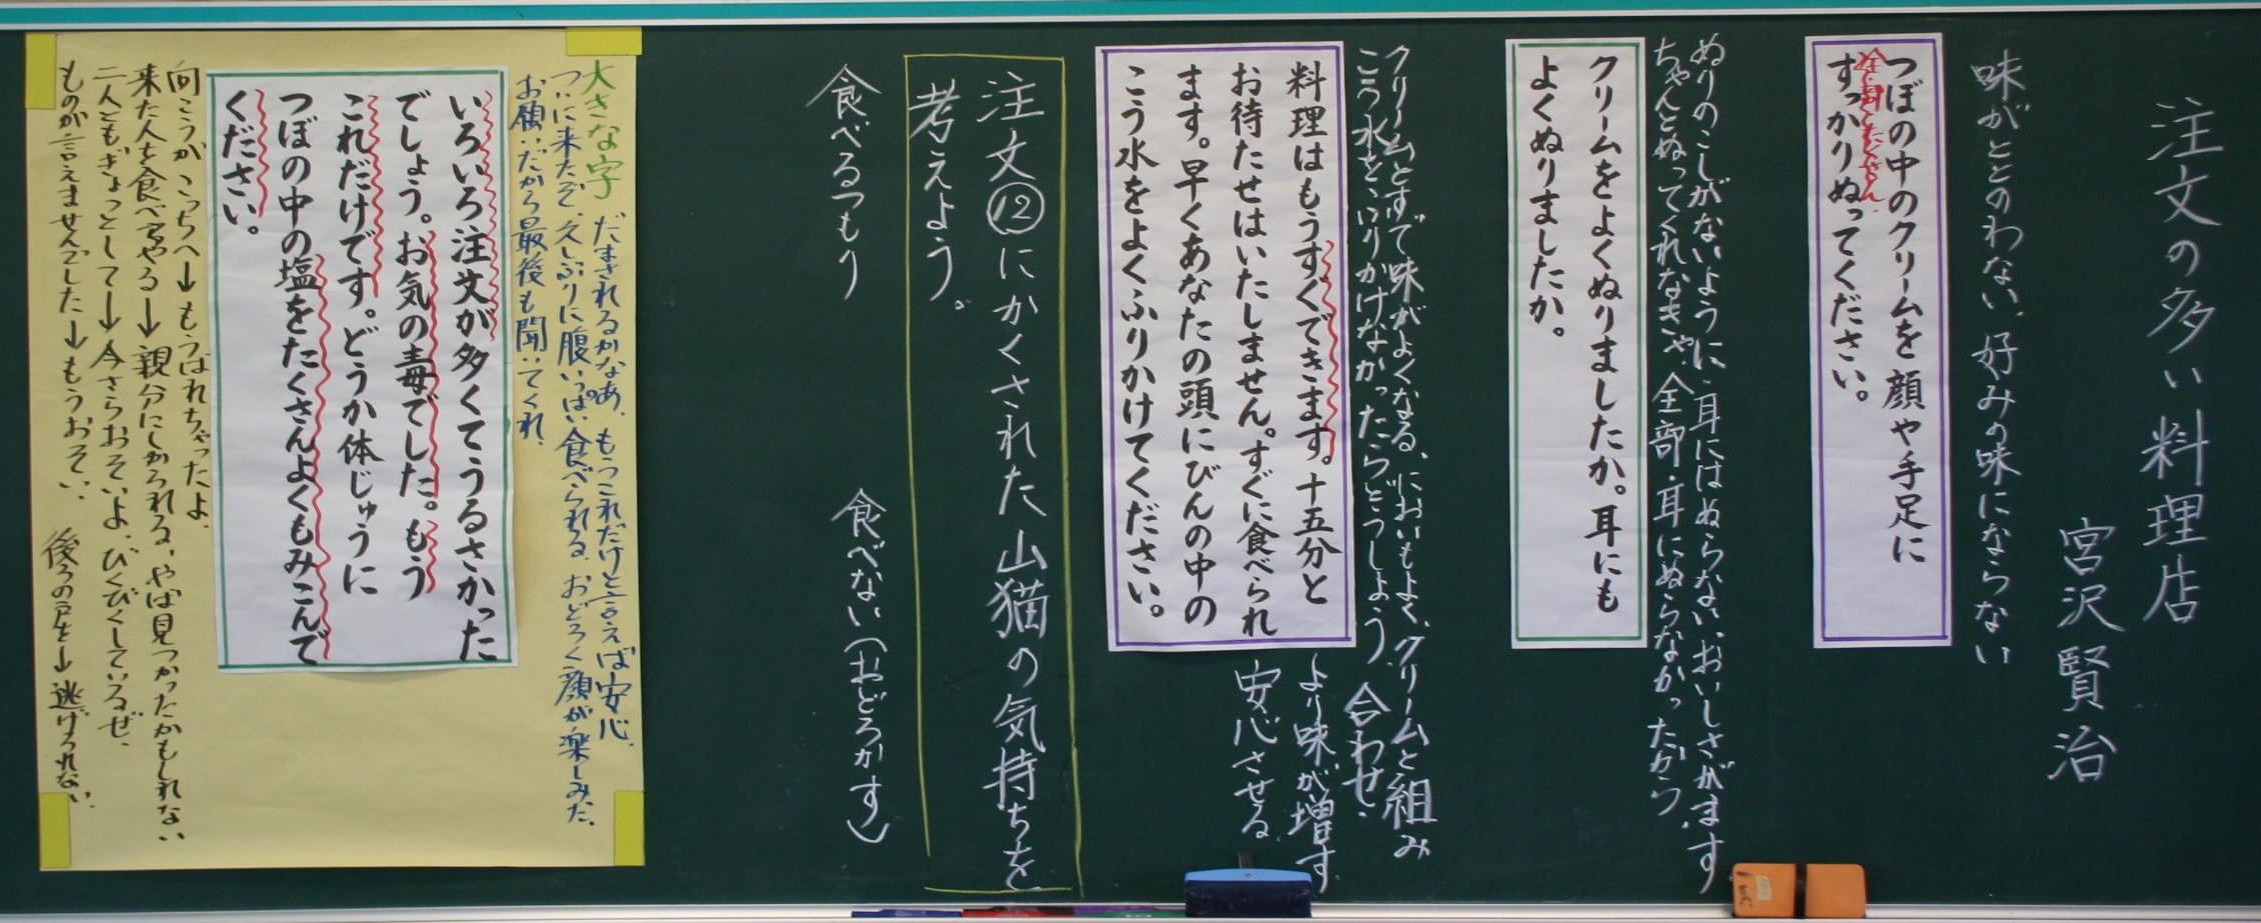 注文の多い料理店
宮沢賢治
味がととのわない、好みの味にならない
つぼの中のクリームを顔や手足に
すっかりぬってください。
ぬりのこしがないように、耳にはぬらない、おいしさがます
ちゃんとぬってくれなきゃ、全部・耳にぬらなかったから、
クリームをよくぬりましたか。耳にも
よくぬりましたか。
クリームとすで味がよくなる、においもよく、クリームと組み
合わせ、
こう水をふりかけなかったらどうしよう、
より味が増す
安心させる
料理はもうすぐできます。十五分と
お待たせはいたしません。すぐに食べられ
ます。早くあなたの頭にびんの中の
こう水をよくふりかけてください。
注文⑫にかくされた山猫の気持ちを
考えよう。
食べるつもり
食べない(おどろかす)
大きな字
だまされるかなあ、もうこれだけと言えば安心、
ついに来たぞ、久しぶりに腹いっぱい食べられる、おどろく顔が楽しみだ、
お願いだから最後も聞いてくれ、
いろいろ注文が多くてうるさかった
でしょう。お気の毒でした。もう
これだけです。どうか体じゅうに
つぼの中の塩をたくさんよくもみこんで
ください。
向こうがこっちへ→もうばれちゃったよ、
来た人を食べてやる→親分にしかられる、やば見つかったかもしれない
二人ともぎょっとして→今さらおそいよ、びくびくしているぜ、
ものが言えませんでした→もうおそい、
後ろの戸を→逃げられない、